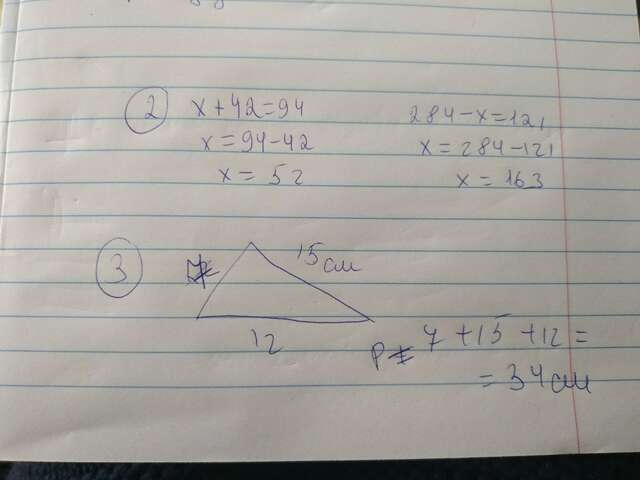 2 x+42=94 284-x=121
x=94-42 x=284-121
x=52 x=163
3 7 15 см
12
P= 7+15+12=
=34 см